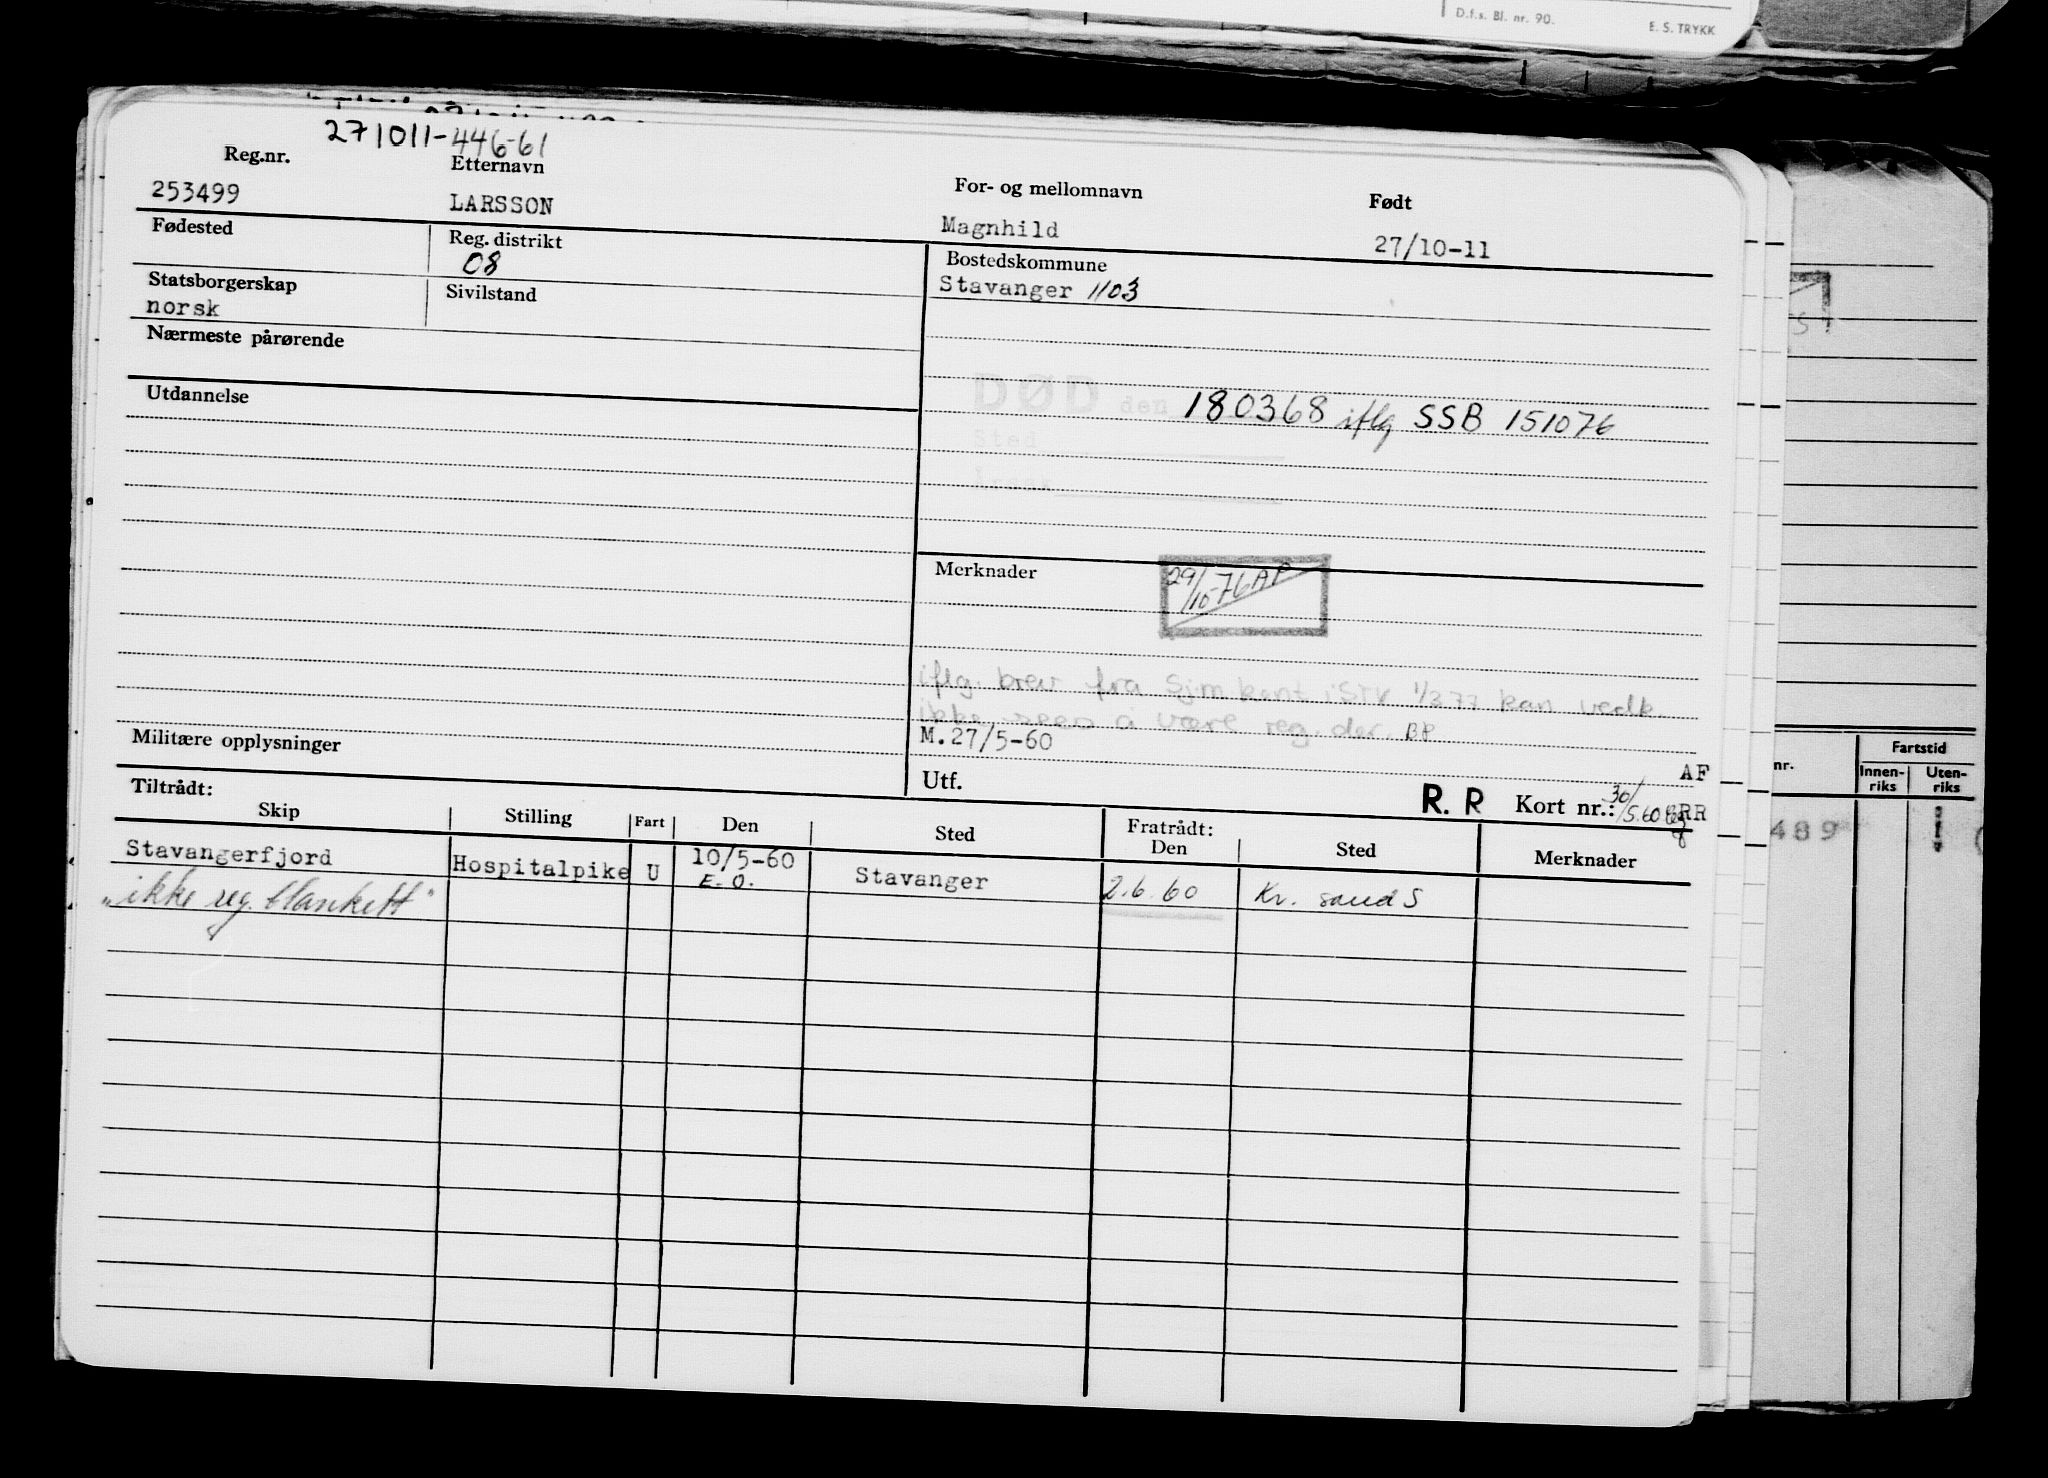 D.f.s. Bl. nr. 90.
E. S. TRYKK
271011-446-61
Reg.nr.
Etternavn
For- og mellomnavn
Født
253499
LARSSON
Magnhild
27/10-11
Fødested
Reg. distrikt
08
Bostedskommune
Stavanger 1103
Statsborgerskap
norsk
Sivilstand
Nærmeste pårørende
Utdannelse
DØD den 180368 iflg SSB 151076
Sted
Årsak
Merknader
29/10-76 AP
iflg. brev fra Sjm.kont i STV 1/3 77 kan vedk.
ikke sees å være reg. der. BP
M.27/5-60
Militære opplysninger
AF
Utf.
R. R
Kort nr.:
30/5.60
RR
Tiltrådt:
Skip
Stilling
Fart
Den
Sted
Fratrådt:
Den
Sted
Merknader
Stavangerfjord
Hospitalpike
U
10/5-60
E.O.
Stavanger
2.6.60
Kr. sand S
"ikke reg. blankett"
nr.
Fartstid
Innen-
riks
Uten-
riks
489